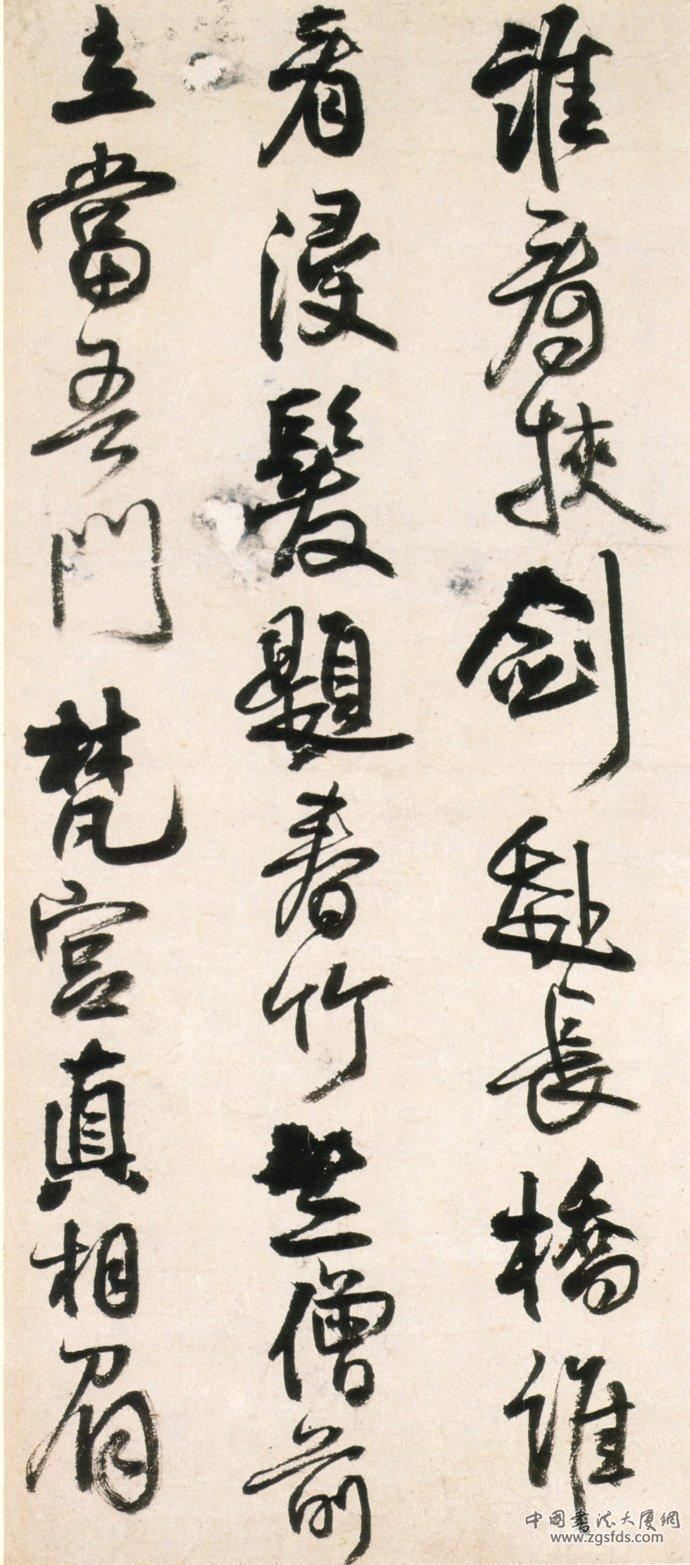 誰看挾劍赴長橋誰
看浸髮題春竹僧前
立當吾門梵宮真相眉
中國書法大廈網
www.zgsfds.com